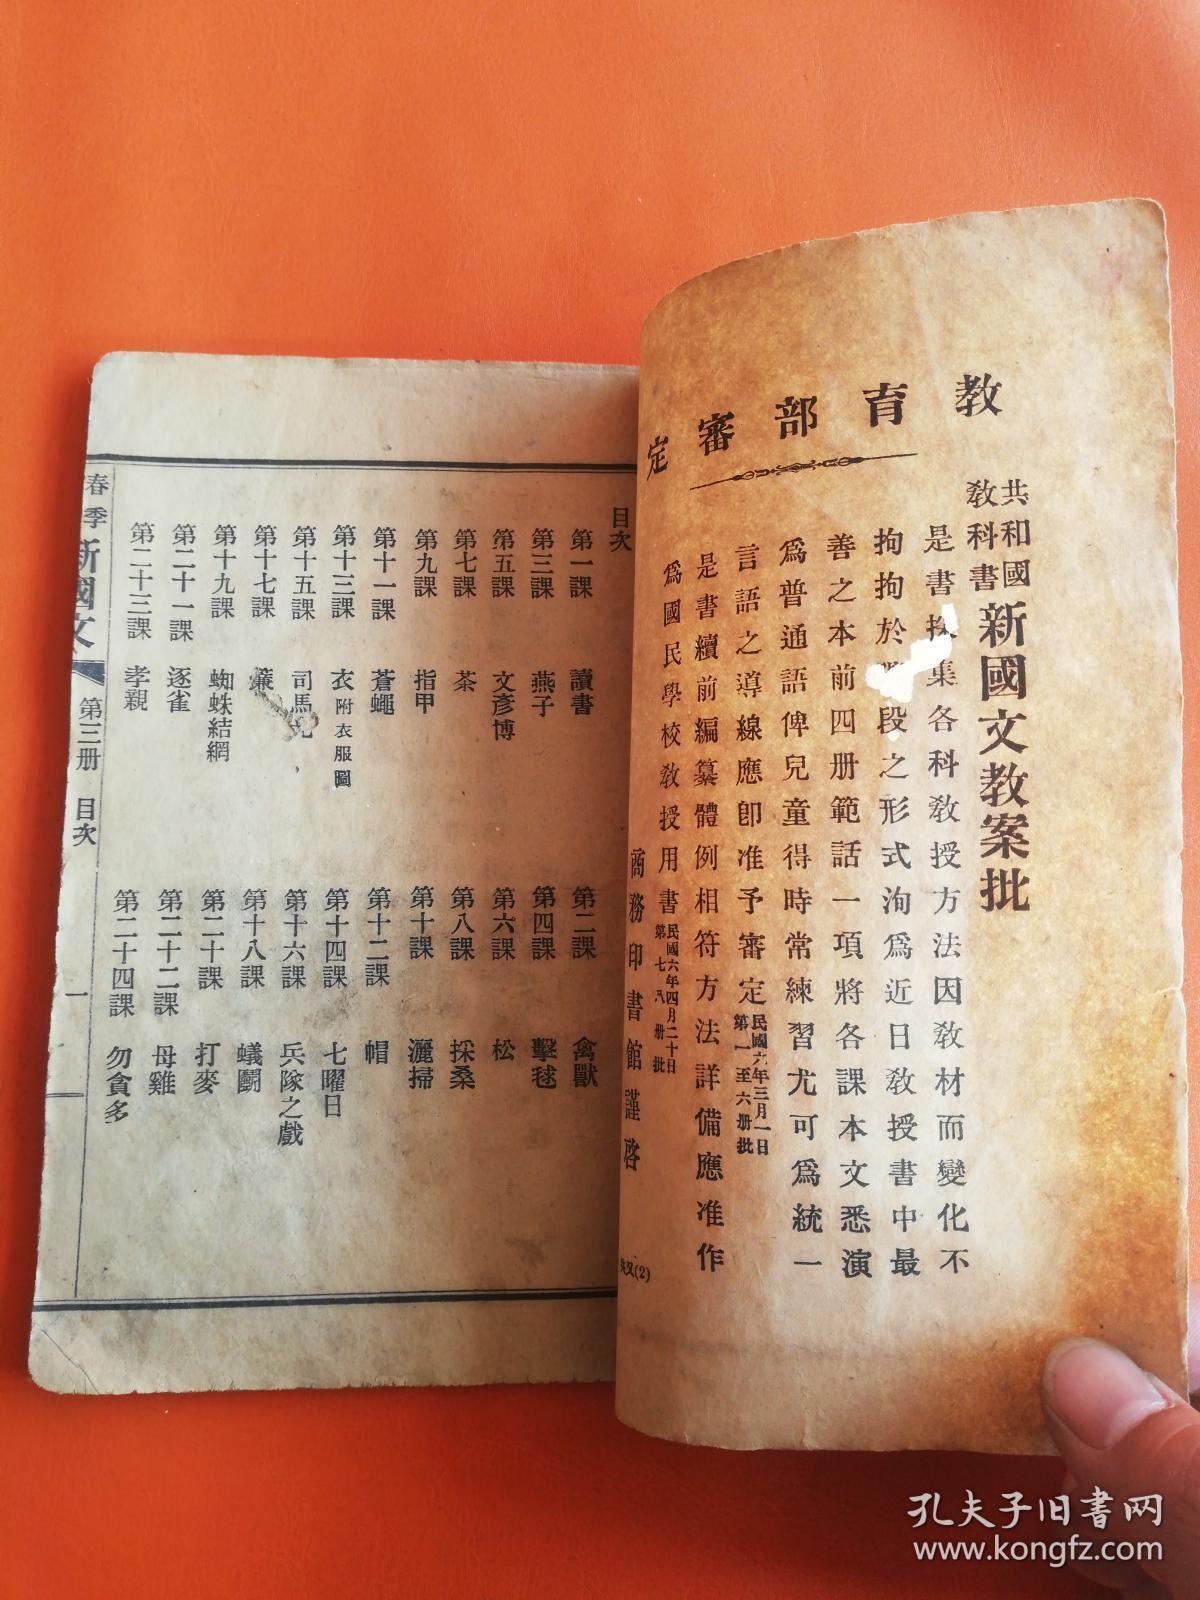 教育部審定
共和國教科書
新國文教案批
是書採集各科教授方法因教材而變化不
拘拘於段之形式洵爲近日教授書中最
善之本前四册範話一項將各課本文悉演
爲普通語俾兒童得時常練習尤可爲統一
言語之導線應卽准予審定民國六年三月一日第一至六册批
是書續前編纂體例相符方法詳備應准作
爲國民學校教授用書民國六年四月二十日第七八册批
商務印書館謹啓
(2)
目次
第一課 讀書
第二課 禽獸
第三課 燕子
第四課 擊毬
第五課 文彥博
第六課 松
第七課 茶
第八課 採桑
第九課 指甲
第十課 灑掃
第十一課 蒼蠅
第十二課 帽
第十三課 衣附衣服圖
第十四課 七曜日
第十五課 司馬光
第十六課 兵隊之戲
第十七課
第十八課 蟻鬭
第十九課 蜘蛛結網
第二十課 打麥
第二十一課 逐雀
第二十二課 母雞
第二十三課 孝親
第二十四課 勿貪多
春季新國文 第三册 目次 一
孔夫子旧书网
www.kongfz.com